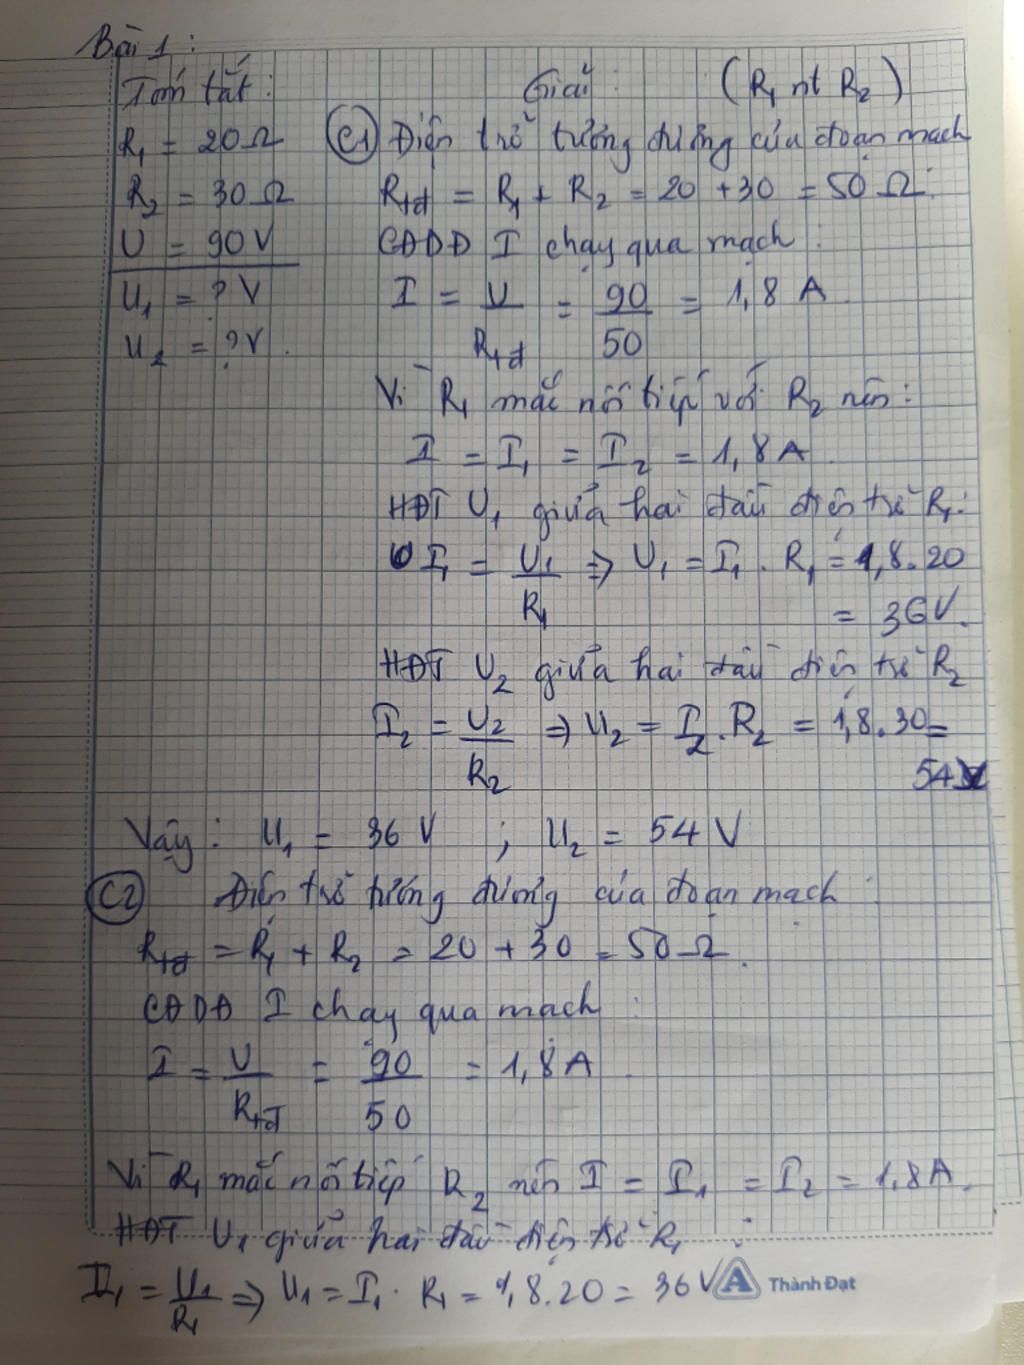 Bài 1 :
Tóm tắt : Giải : (R₁ nt R₂)
R₁ = 20Ω
R₂ = 30Ω
U = 90V
U₁ = ? V
U₂ = ? V.
C1 Điện trở tương đương của đoạn mạch
Rtđ = R₁ + R₂ = 20 + 30 = 50 Ω.
CĐDĐ I chạy qua mạch :
I = U/Rtđ = 90/50 = 1,8 A
Vì R₁ mắc nối tiếp với R₂ nên :
I = I₁ = I₂ = 1,8 A.
HĐT U₁ giữa hai đầu điện trở R₁ :
I₁ = U₁/R₁ => U₁ = I₁ . R₁ = 1,8 . 20
= 36V.
HĐT U₂ giữa hai đầu điện trở R₂
I₂ = U₂/R₂ => U₂ = I₂ . R₂ = 1,8 . 30 =
54V
Vậy : U₁ = 36 V ; U₂ = 54 V
C2 Điện trở tương đương của đoạn mạch :
Rtđ = R₁ + R₂ = 20 + 30 = 50 Ω.
CĐDĐ I chạy qua mạch :
I = U/Rtđ = 90/50 = 1,8 A.
Vì R₁ mắc nối tiếp R₂ nên I = I₁ = I₂ = 1,8 A.
HĐT U₁ giữa hai đầu điện trở R₁ :
I₁ = U₁/R₁ => U₁ = I₁ . R₁ = 1,8 . 20 = 36 V
Thành Đạt